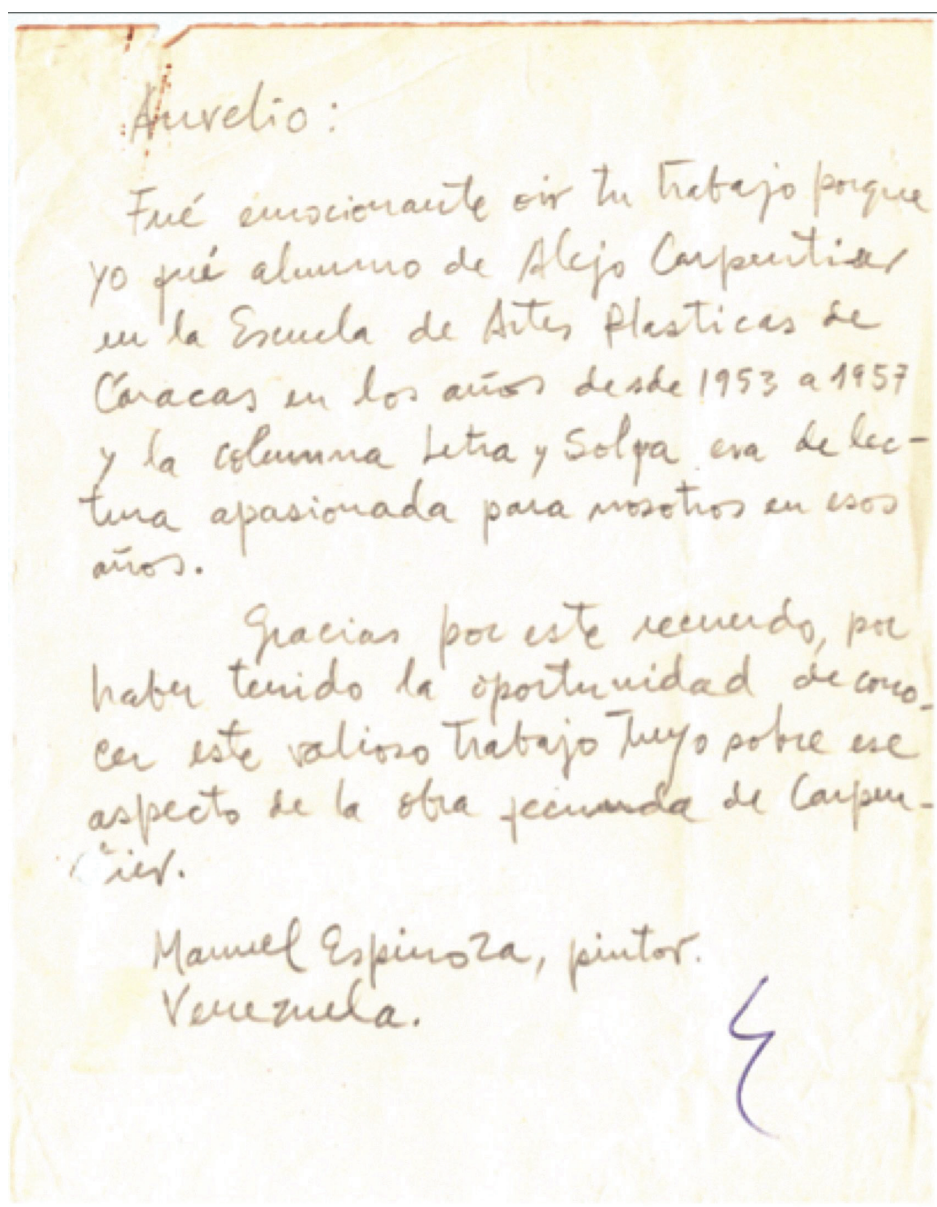 Aurelio:
Fué emocionante oir tu trabajo porque
yo fué alumno de Alejo Carpentier
en la Escuela de Artes Plasticas de
Caracas en los años desde 1953 a 1957
y la columna Letra y Solfa era de lec-
tura apasionada para nosotros en esos
años.
Gracias por este recuerdo, por
haber tenido la oportunidad de cono-
cer este valioso trabajo tuyo sobre ese
aspecto de la obra fecunda de Carpen-
tier.
Manuel Espinoza, pintor.
Venezuela.